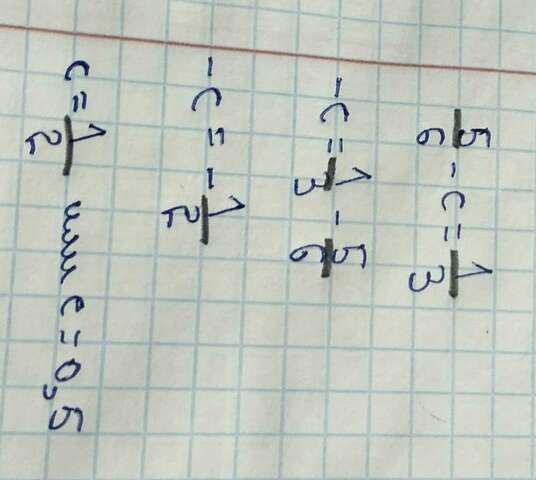 5/6 - c = 1/3
-c = 1/3 - 5/6
-c = -1/2
c = 1/2 или c = 0,5